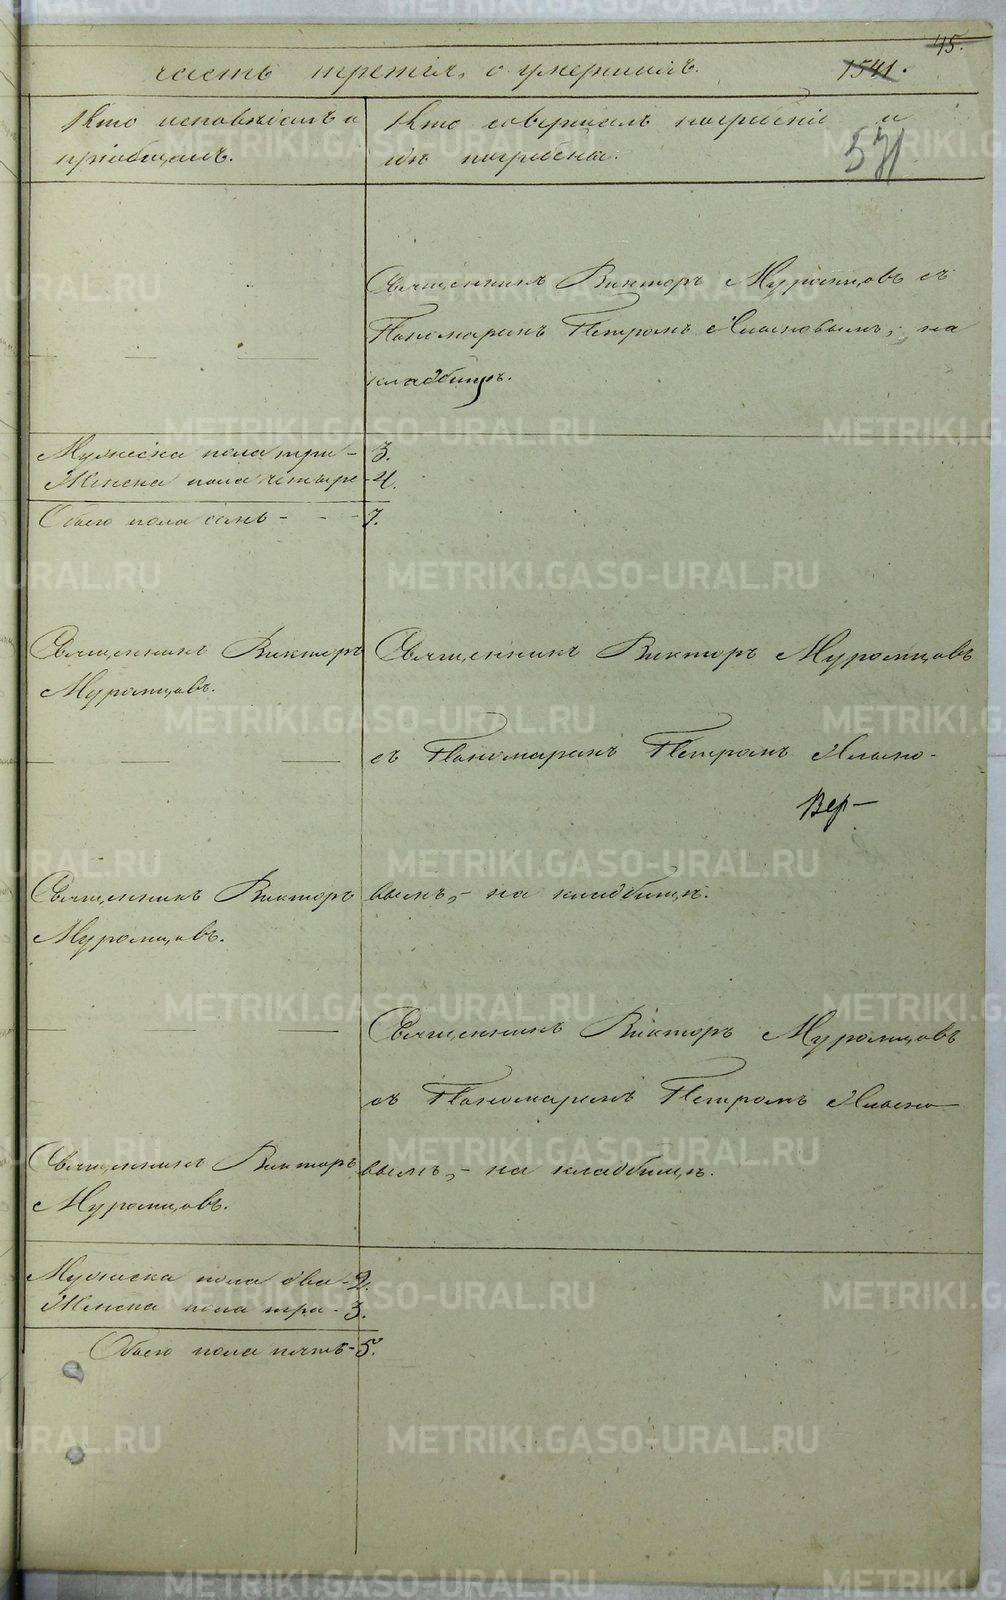 45.
часть третія, о умершихъ.
1541.
Кто исповѣдалъ и
пріобщалъ.
Кто совершалъ погребеніе и
гдѣ погребены.
571
Священникъ Викторъ Муромцовъ съ
Пономаремъ Петромъ Ильиновымъ, на
кладбищѣ.
Мужеска пола три - 3.
Женска пола четыре - 4.
Обоего пола семь - - - 7.
Священникъ Викторъ
Муромцовъ.
Священникъ Викторъ Муромцовъ
съ Пономаремъ Петромъ Ильино-
Вер-
Священникъ Викторъ
Муромцовъ.
вымъ, - на кладбищѣ.
Священникъ Викторъ Муромцовъ
съ Пономаремъ Петромъ Ильино-
Священникъ Викторъ
Муромцовъ.
вымъ, - на кладбищѣ.
Мужеска пола два - 2.
Женска пола три - 3.
Обоего пола пять - 5.
METRIKI.GASO-URAL.RU